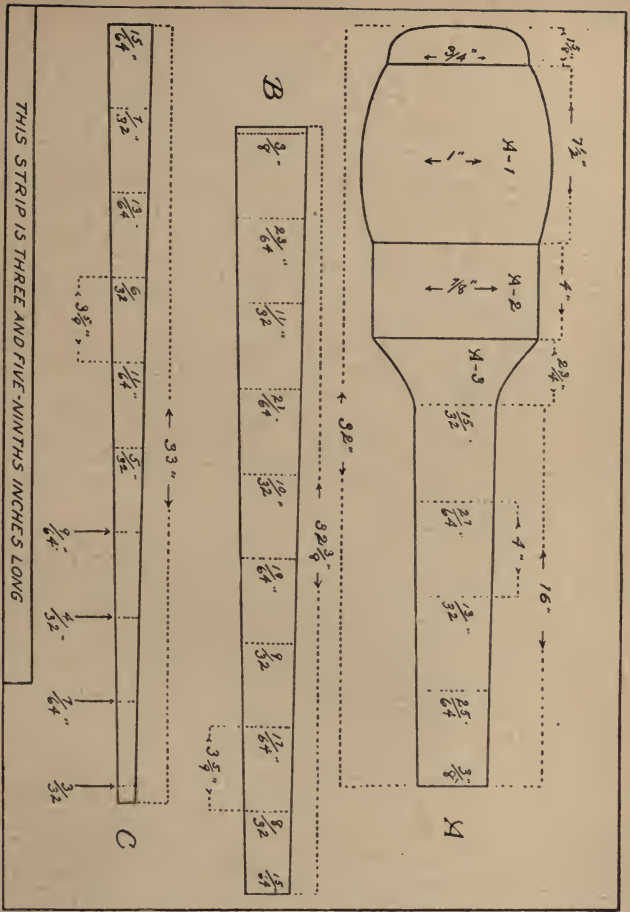 1 5/8" 7 1/2" 4" 2 3/4" 16"
4"
A-1 A-2 A-3
3/4" 1" 7/8" 15/32" 27/64" 13/32" 25/64" 3/8" A
32"
32 3/8"
B 3/8" 23/64" 11/32" 21/64" 10/32" 19/64" 9/32 17/64" 8/32" 15/64"
3 5/9"
33"
15/64" 7/32" 13/64" 6/32" 11/64" 5/32" C
3 5/9"
9/64" 4/32" 7/64" 3/32
THIS STRIP IS THREE AND FIVE-NINTHS INCHES LONG